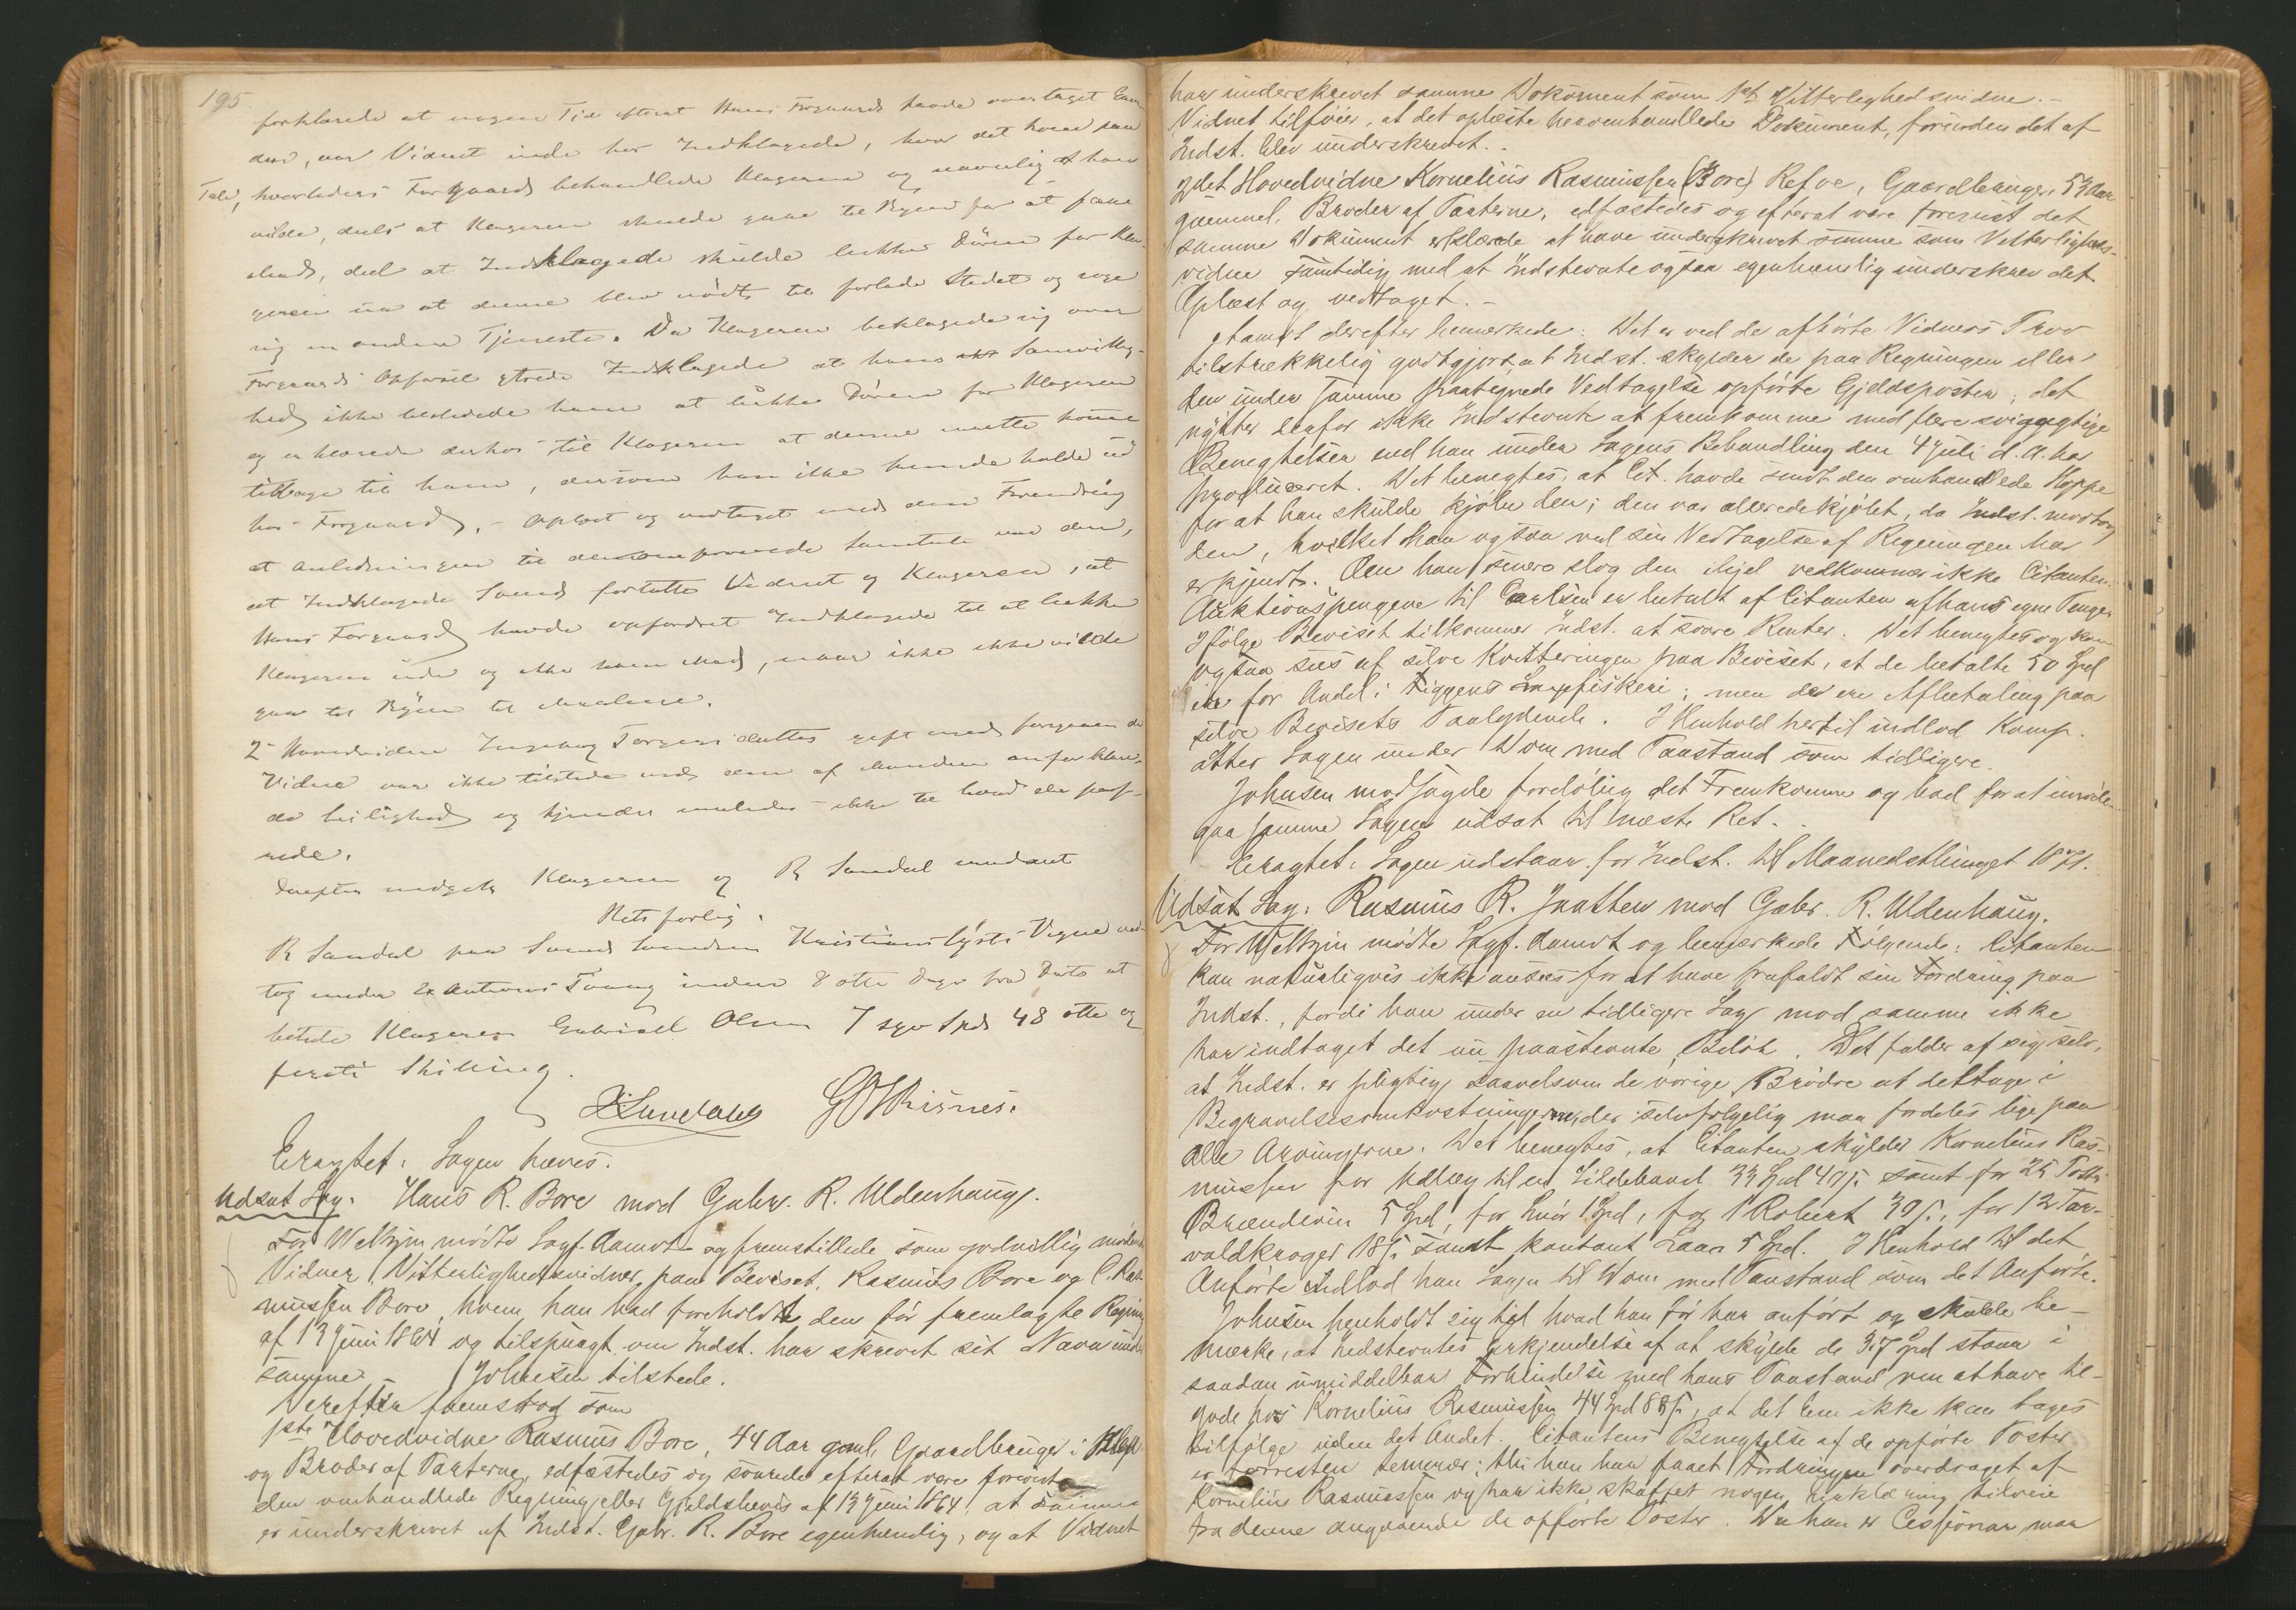 195
forklarede at nogen Tid efterat Hans Forgaard havde overtaget Gaar-
den, var Vidnet inde hos Indklagede, hvor det kom paa
Tale, hvorledes Forgaard behandlede Klageren og navnlig at han
vilde, dels at Klageren skulde gaae til Byen for at
deels at Indklagede skulde lukke Døren for Kla-
geren saa at denne blev nødt til forlade Stedet og søge
sig en anden Tjeneste. Da Klageren beklagede sig over
Forgaards Opførsel ytrede Indklagede at hans Samvittig-
hed ikke tillod ham at lukke Døren for Klageren
og erklærede derhos til Klageren at denne maatte komme
tilbage til ham, dersom han ikke kunde holde ud
hos Forgaard. - Oplæst og vedtaget med den Forandring
at Anledningen til Samtale var den,
at Indklagede fortalte Vidnet og Klageren, at
Hans Forgaard havde opfordret Indklagede til at lukke
Klageren ude og ikke ham Mad, naar ikke vilde
gaa til Byen til
2 Hovedvidne Ingeborg Torgersdatter gift med foregaaende
Vidne var ikke tilstede ved den af Manden anførte
Leilighed og kjender saaledes ikke til hvad der pas-
serede.
Derefter indgik Klageren og R Sandal saadant
Retsforlig.
R Sandal paa Vegne ved-
tog under Executions Tvang inden 8 otte Dage fra Dato at
betale Klageren Gabriel Olsen 7 syv Spd 48 otte og
førti Skilling.
RSandal GORisnes.
Eragtet: Sagen hæves.
Udsat Sag: Hans R. Bore mod Gabr. R. Uldenhaug.
For Weltzin mødte Sagf. Aamodt og fremstillede som godvillig mødende
Vidner (Vitterlighedsvidner) paa Beviset, Rasmus Bore og C. Ras-
mussen Bore, hvem han bad foreholdt den før fremlagte Regning
af 13 Juni 1864 og tilspurgt om Indst. har skrevet sit Navn under
samme. Johnsen tilstede.
Derefter fremstod som
1ste Hovedvidne Rasmus Bore, 44 Aar gaml. Gaardbruger i Klep
og Broder af Parterne, edfæstedes og svarede efterat være forevist
den omhandlede Regning eller Gjeldsbevis af 13 Juni 1864, at samme
er underskrevet af Indst. Gabr. R. Bore egenhændig, og at Vidnet
har underskrevet samme Dokument som 1st Vitterlighedsvidne. -
Vidnet tilføier, at det oplæste heromhandlede Dokument, forinden det af
Indst. blev underskrevet. -
2det Hovedvidne Kornelius Rasmussen (Bore) Refve, Gaardbruger, 53 Aar
gammel, Broder af Parterne, edfæstedes og efterat være forevist det
samme Dokument erklærede at have underskrevet samme som Vitterligheds-
vidne samtidig med at Indstevnte ogsaa egenhændig underskrev det.
Oplæst og vedtaget. -
Aamodt derefter bemærkede: Det er ved de afhørte Vidners Prov
tilstrækkelig godtgjort, at Indst. skylder de paa Regningen eller
den under samme paategnede Vedtagelse opførte Gjeldsposter; det
nytter derfor ikke Indstevnte at fremkomme med flere svigagtige
Benegtelser end han under Sagens Behandling den 4 Juli d. A. har
produceret. Det benegtes, at Cit. havde sendt den omhandlede Hoppe
for at han skulde kjøbe den; den var allerede kjøbt, da Indst. modtog
den, hvilket han ogsaa ved sin Vedtagelse af Regningen har
erkjendt. Om han senere slog den ihjel vedkommer ikke Citanten.
Auktionspengene til Carlsen er betalt af Citanten af hans egne Penge.
Ifølge Beviset tilkommer Indst. at svare Renter. Det benegtes og kan
ogsaa sees af selve Kvitteringen paa Beviset, at de betalte 50 Spd
er for Andel i Figgens Laxefiskeri; men de ere Afbetaling paa
selve Bevisets Paalydende. I Henhold hertil indlod Komp.
atter Sagen under Dom med Paastand som tidligere.
Johnsen modsagde foreløbig det Fremkomne og bad for at imøde-
gaa samme Sagen udsat til næste Ret. -
Eragtet: Sagen udstaar for Indst. til Maanedsthinget 1871.
Udsat Sag: Rasmus R. Jaatten mod Gabr. R. Uldenhaug.
For Weltzin mødte Sagf. Aamodt og bemærkede Følgende: Citanten
kan naturligvis ikke ansees for at have frafaldt sin Fordring paa
Indst., fordi han under en tidligere Sag mod samme ikke
har indtaget det nu paastevnte Beløb. Det falder af sig selv,
at Indst. er pligtig saavelsom de øvrige Brødre at deltage i
Begravelsesomkostningerne, der selvfølgelig maa fordeles lige paa
alle Arvingerne. Det benegtes, at Citanten skylder Kornelius Ras-
mussen for Udlæg til en Sildebaad 33 Spd 49 ß. samt for 25 Potter
Brændevin 5 Spd, for 1 Spd, for 1 39 ß., for 12 Tor-
voldkroger 18 ß samt kontant Laan 5 Spd. I Henhold til det
Anførte indlod han Sagen til Dom med Paastand som det Anførte.
Johnsen henholdt sig til hvad han før har anført og skulde be-
mærke, at Indstevntes Erkjendelse af at skylde de 37 Spd staar i
saadan umiddelbar Forbindelse med hans Paastand om at have til-
gode hos Kornelius Rasmussen 44 Spd 88 ß., at det Ene ikke kan tages
tilfølge uden det Andet. Citantens Benegtelse af de opførte Poster
er forresten temerær; thi han har faaet Fordringen overdraget af
Kornelius Rasmussen og har ikke skaffet nogen Erklæring tilveie
fra denne angaaende de opførte Poster. Da han er Cessionar maa